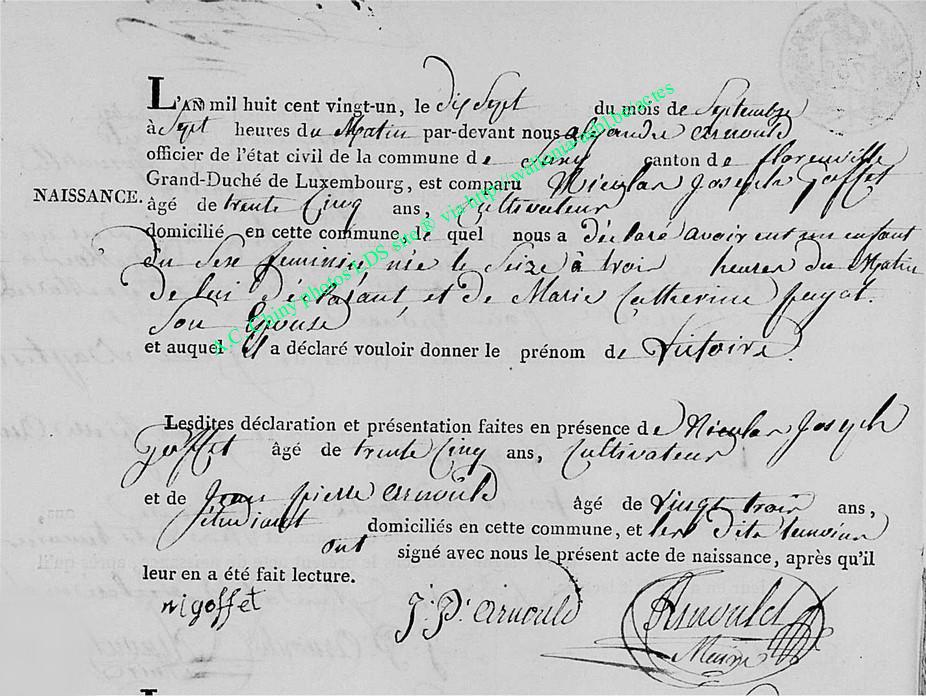 L'AN mil huit cent vingt-un, le dix Sept du mois de Septembre
à Sept heures du Matin par-devant nous alexandre arnould
officier de l'état civil de la commune de canton de florenville
Grand-Duché de Luxembourg, est comparu Nicolas Joseph goffet
NAISSANCE.
âgé de trente Cinq ans, Cultivateur
domicilié en cette commune, le quel nous a déclaré avoir eut un enfant
du Sexe feminin née le Seize à trois heures du Matin
de lui déclarant et de Marie Catherine
Son Epouse
et auquel il a déclaré vouloir donner le prénom de
A.C. Chiny photos LDS site © via http://wallonia-asbl.be/actes
Lesdites déclaration et présentation faites en présence de Nicolas Joseph
goffet âgé de trente Cinq ans, Cultivateur
et de Jean pierre arnould âgé de vingt trois ans,
étudiant domiciliés en cette commune, et lesdits temoins
ont signé avec nous le présent acte de naissance, après qu'il
leur en a été fait lecture.
nigoffet J. P. arnould Arnould
Maire